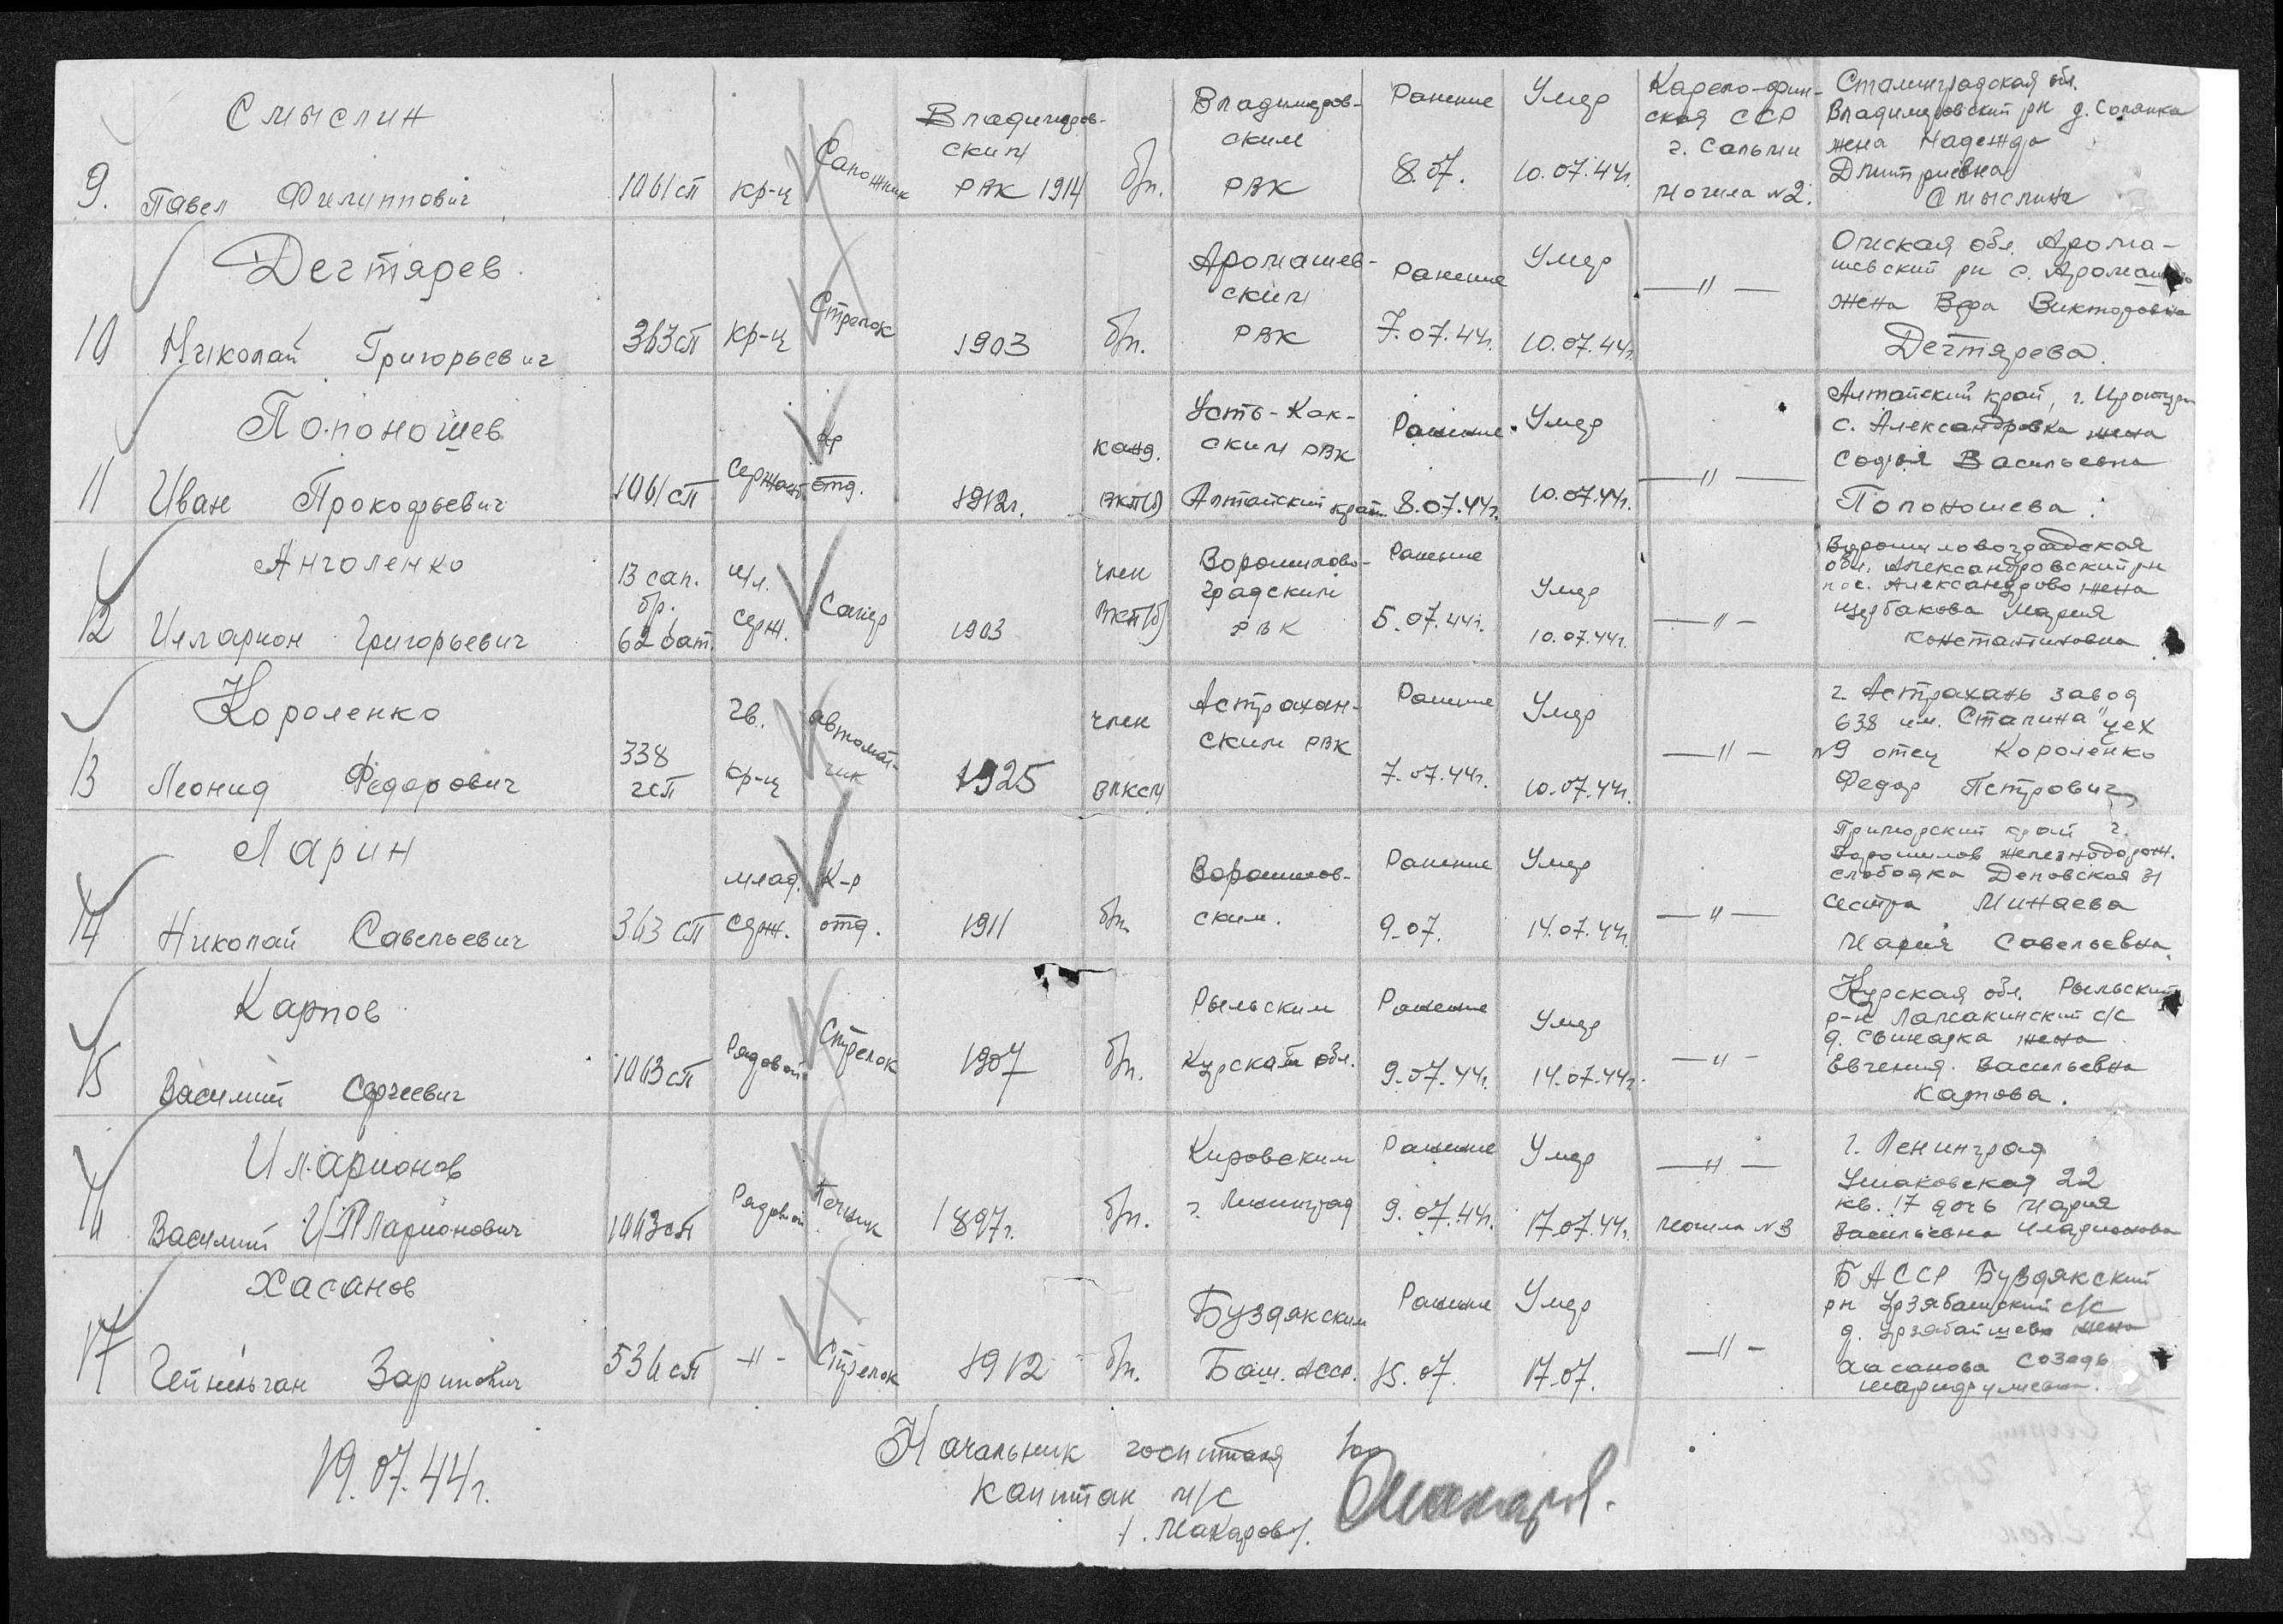 Смыслин
9. Павел Филиппович
1061 сп
кр-ц
Сапожник
Владимиров-
ским
РВК 1914
б/п.
Владимиров-
ским
РВК
Ранение
8.07.
Умер
10.07.44г.
Карело-фин-
ская ССР
г. Сальми
могила №2.
Сталинградская обл.
Владимировский рн д. Солянка
жена Надежда
Дмитриевна
Смыслина
Дегтярев
10 Николай Григорьевич
363 сп
кр-ц
Стрелок
1903
б/п.
Аромашев-
ским
РВК
Ранение
7.07.44г.
Умер
10.07.44г.
—"—
Омская обл. Арома-
шевский рн с.
жена Вера Викторовна
Дегтярева.
Попоношев
11 Иван Прокофьевич
1061 сп
Сержант
отд.
1912г.
канд.
ВКП(б)
Усть-Как-
ским РВК
Алтайский край
Ранение
8.07.44г.
Умер
10.07.44г.
—"—
Алтайский край,
с. Александровка жена
Софья Васильевна
Попоношева.
Анголенко
12 Илларион Григорьевич
13 сап.
бр.
62 бат.
мл.
серж.
Сапер
1903
член
ВКП(б)
Ворошилово-
градским
РВК
Ранение
5.07.44г.
Умер
10.07.44г.
—"—
Ворошиловоградская
обл. Александровский рн
пос. Александрово жена
Щербакова Мария
Константиновна
Короленко
13 Леонид Федорович
338
гсп
гв.
кр-ц
автомат-
чик
1925
член
ВЛКСМ
Астрахан-
ским РВК
Ранение
7.07.44г.
Умер
10.07.44г.
—"—
г. Астрахань завод
638 им. Сталина" цех
№9 отец Короленко
Федор Петрович
Ларин
14 Николай Савельевич
363 сп
млад.
серж.
К-р
отд.
1911
б/п.
Ворошилов-
ским.
Ранение
9.07.
Умер
14.07.44г.
—"—
Приморский край г.
Ворошилов железнодорож.
слободка Деповская 31
сестра Минаева
Мария Савельевна.
Карпов
15 Василий Сергеевич
1063 сп
Рядовой
Стрелок
1907
б/п.
Рыльским
Курской обл.
Ранение
9.07.44г.
Умер
14.07.44г.
—"—
Курская обл. Рыльский
р-н с/с
д. жена
Евгения Васильевна
Карпова.
Иларионов
16 Василий Илларионович
1063 сп
Рядовой
1897г.
б/п.
Кировским
г. Ленинград
Ранение
9.07.44г.
Умер
17.07.44г.
—"—
могила №3
г. Ленинград
Ушаковская 22
кв. 17 дочь Мария
Васильевна Иларионова
Хасанов
17 Зарипович
536 сп
-"-
Стрелок
1912
б/п.
Буздякским
Баш. АССР.
Ранение
15.07.
Умер
17.07.
—"—
БАССР Буздякский
рн с/с
д. жена
Хасанова
19.07.44г.
Начальник госпиталя
капитан м/с
/. Макаров/.